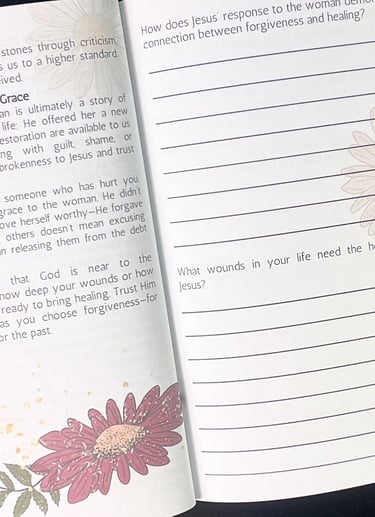 stones through criticism,
s us to a higher standard
ived.
Grace
an is ultimately a story of
life. He offered her a new
estoration are available to us
ng with guilt, shame, or
brokenness to Jesus and trust
someone who has hurt you.
grace to the woman. He didn't
ove herself worthy—He forgave
others doesn't mean excusing
n releasing them from the debt
that God is near to the
now deep your wounds or how
ready to bring healing. Trust Him
as you choose forgiveness—for
or the past.
How does Jesus' response to the woman
connection between forgiveness and healing?
What wounds in your life need the
Jesus?